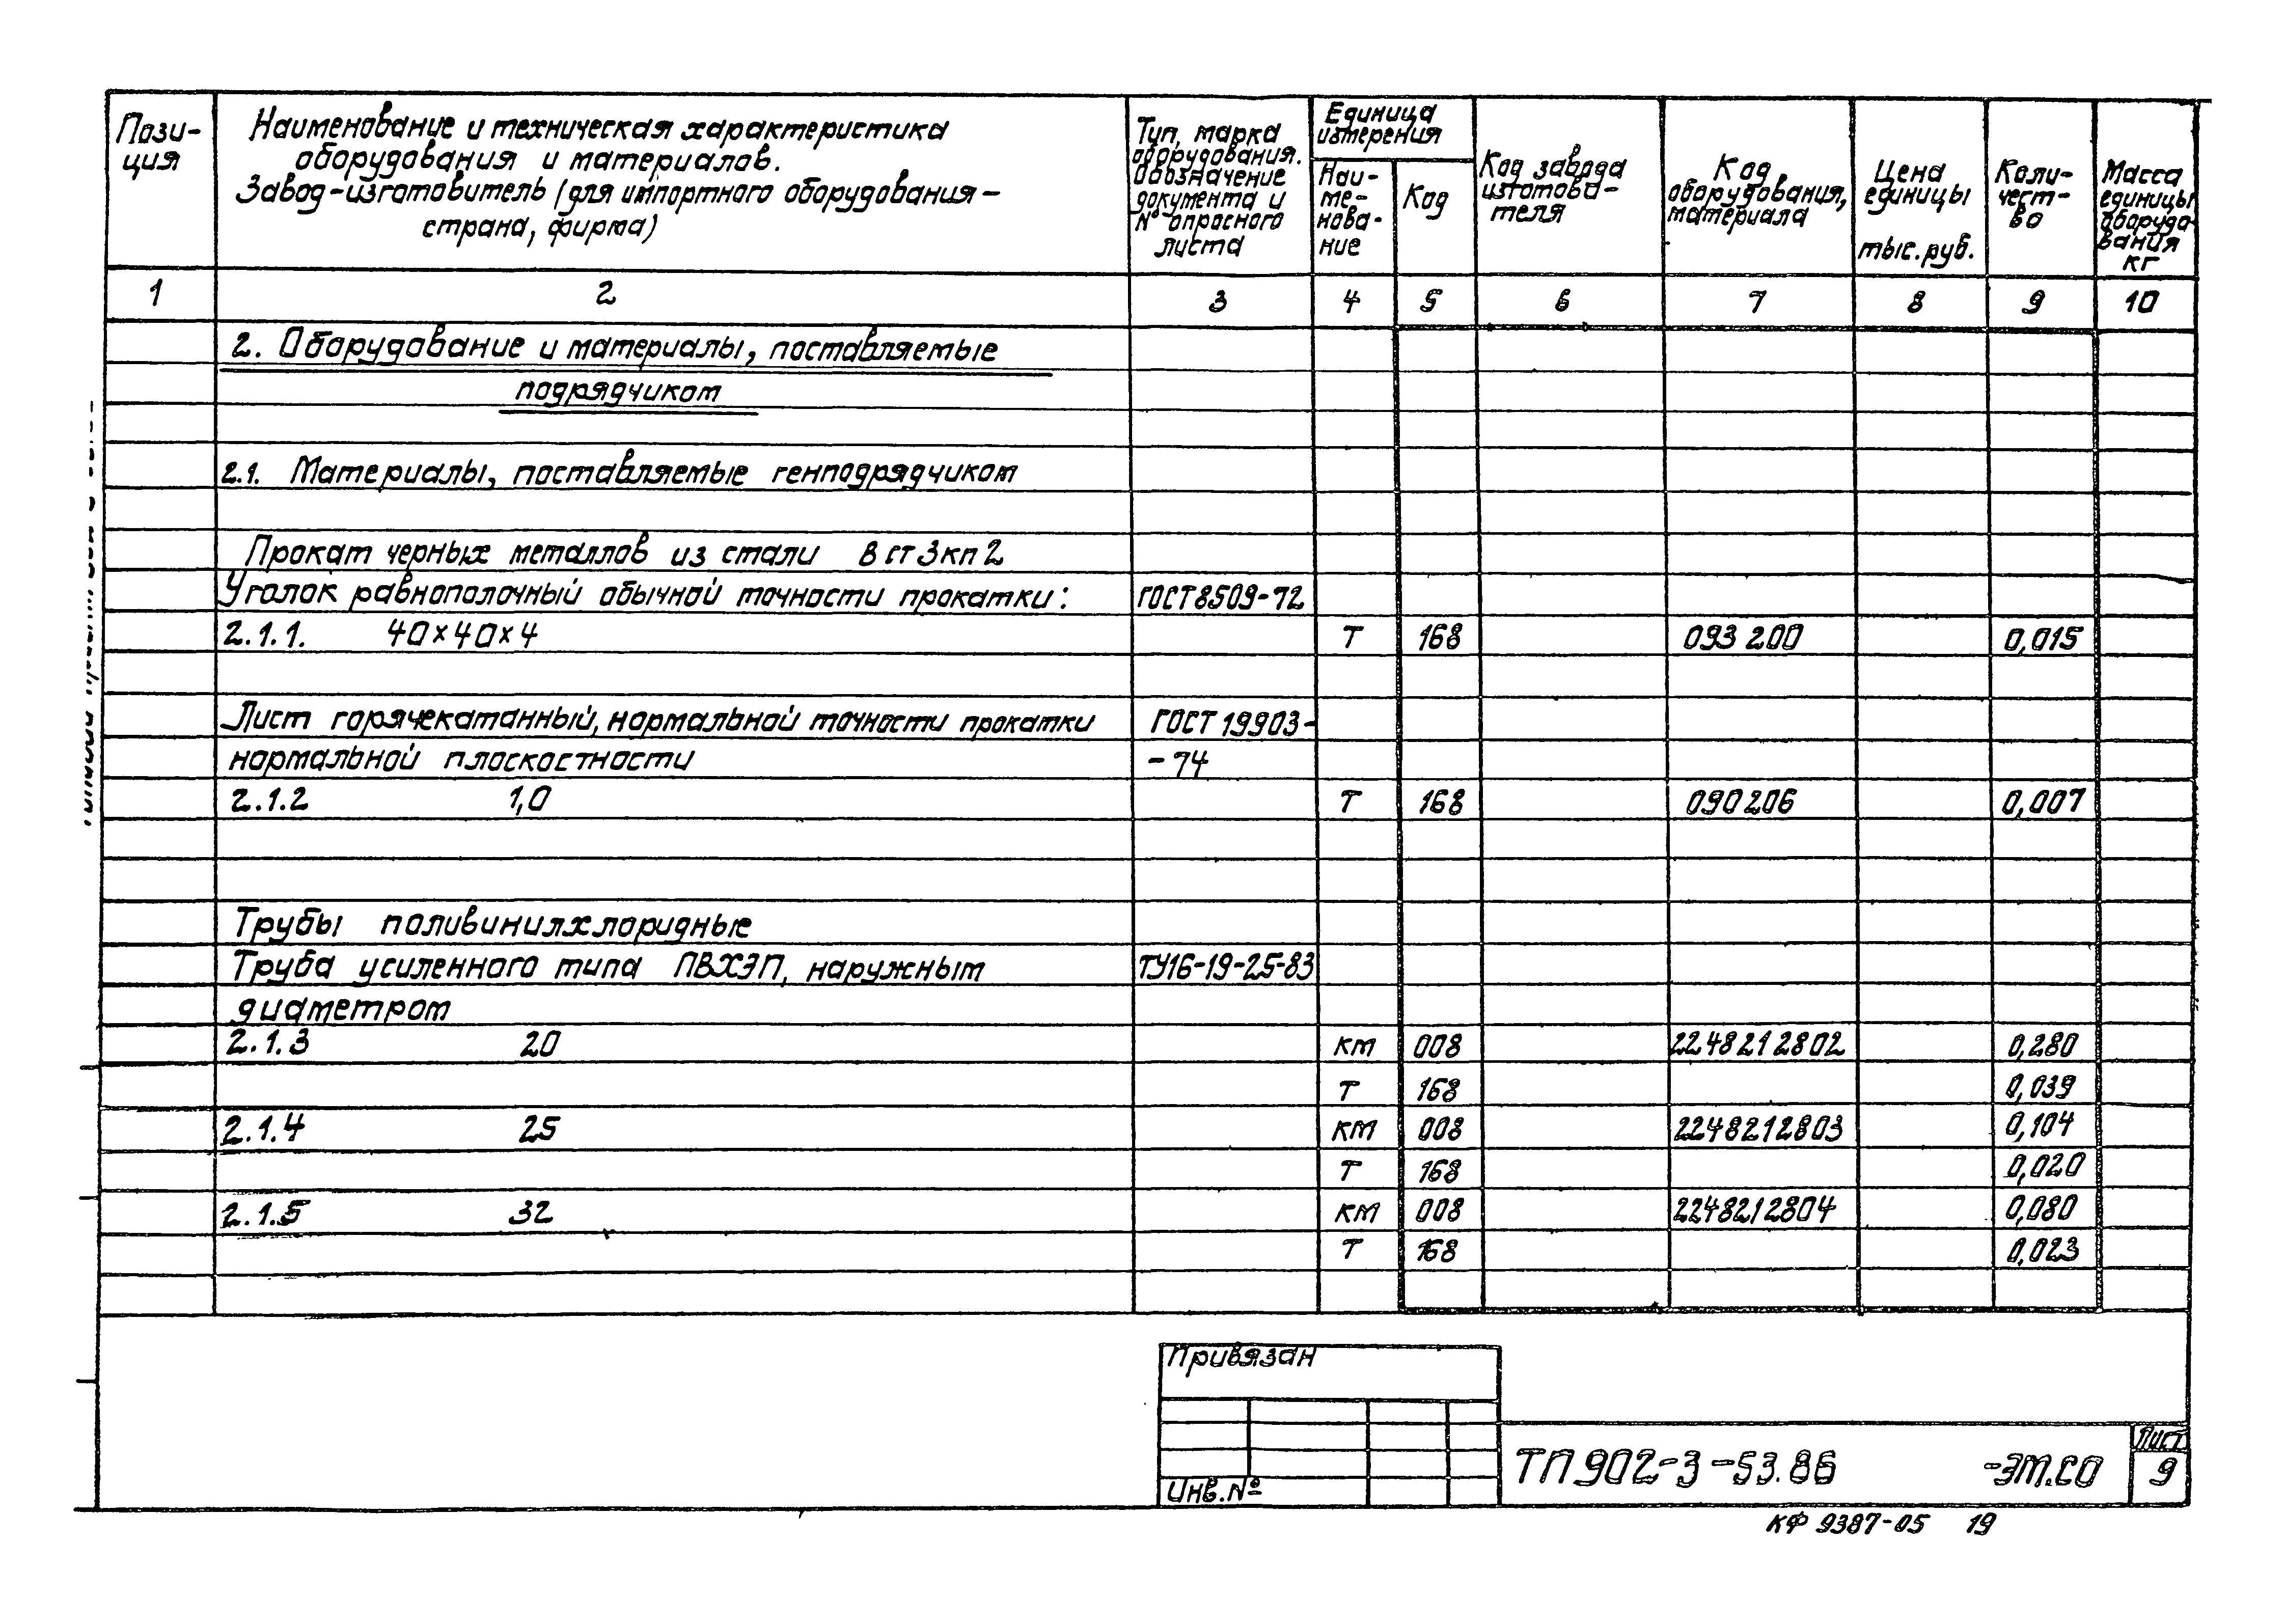 Пози-
ция
Наименование и техническая характеристика
оборудования и материалов.
Завод-изготовитель (для импортного оборудования-
страна, фирма)
Тип, марка
оборудования.
Обозначение
документа и
№ опросного
листа
Единица
измерения
Наи-
ме-
нова-
ние
Код
Код завода
изготови-
теля
Код
оборудования,
материала
Цена
единицы
тыс.руб.
Коли-
чест-
во
Масса
единицы
оборудо-
вания
кг
1 2 3 4 5 6 7 8 9 10
2. Оборудование и материалы, поставляемые
подрядчиком
2.1. Материалы, поставляемые генподрядчиком
Прокат черных металлов из стали Вст3кп2
Уголок равнополочный обычной точности прокатки: ГОСТ8509-72
2.1.1. 40×40×4 Т 168 093 200 0,015
Лист горячекатанный, нормальной точности прокатки ГОСТ 19903-
нормальной плоскостности -74
2.1.2 1,0 Т 168 090206 0,007
Трубы поливинилхлоридные
Труба усиленного типа ПВХЭП, наружным ТУ16-19-25-83
диаметром
2.1.3 20 км 008 2248212802 0,280
Т 168 0,039
2.1.4 25 км 008 2248212803 0,104
Т 168 0,020
2.1.5 32 км 008 2248212804 0,080
Т 168 0,023
Привязан
Инв.№
ТП 902-3-53.86 -ЭМ.СО
Лист
9
КФ 9387-05 19